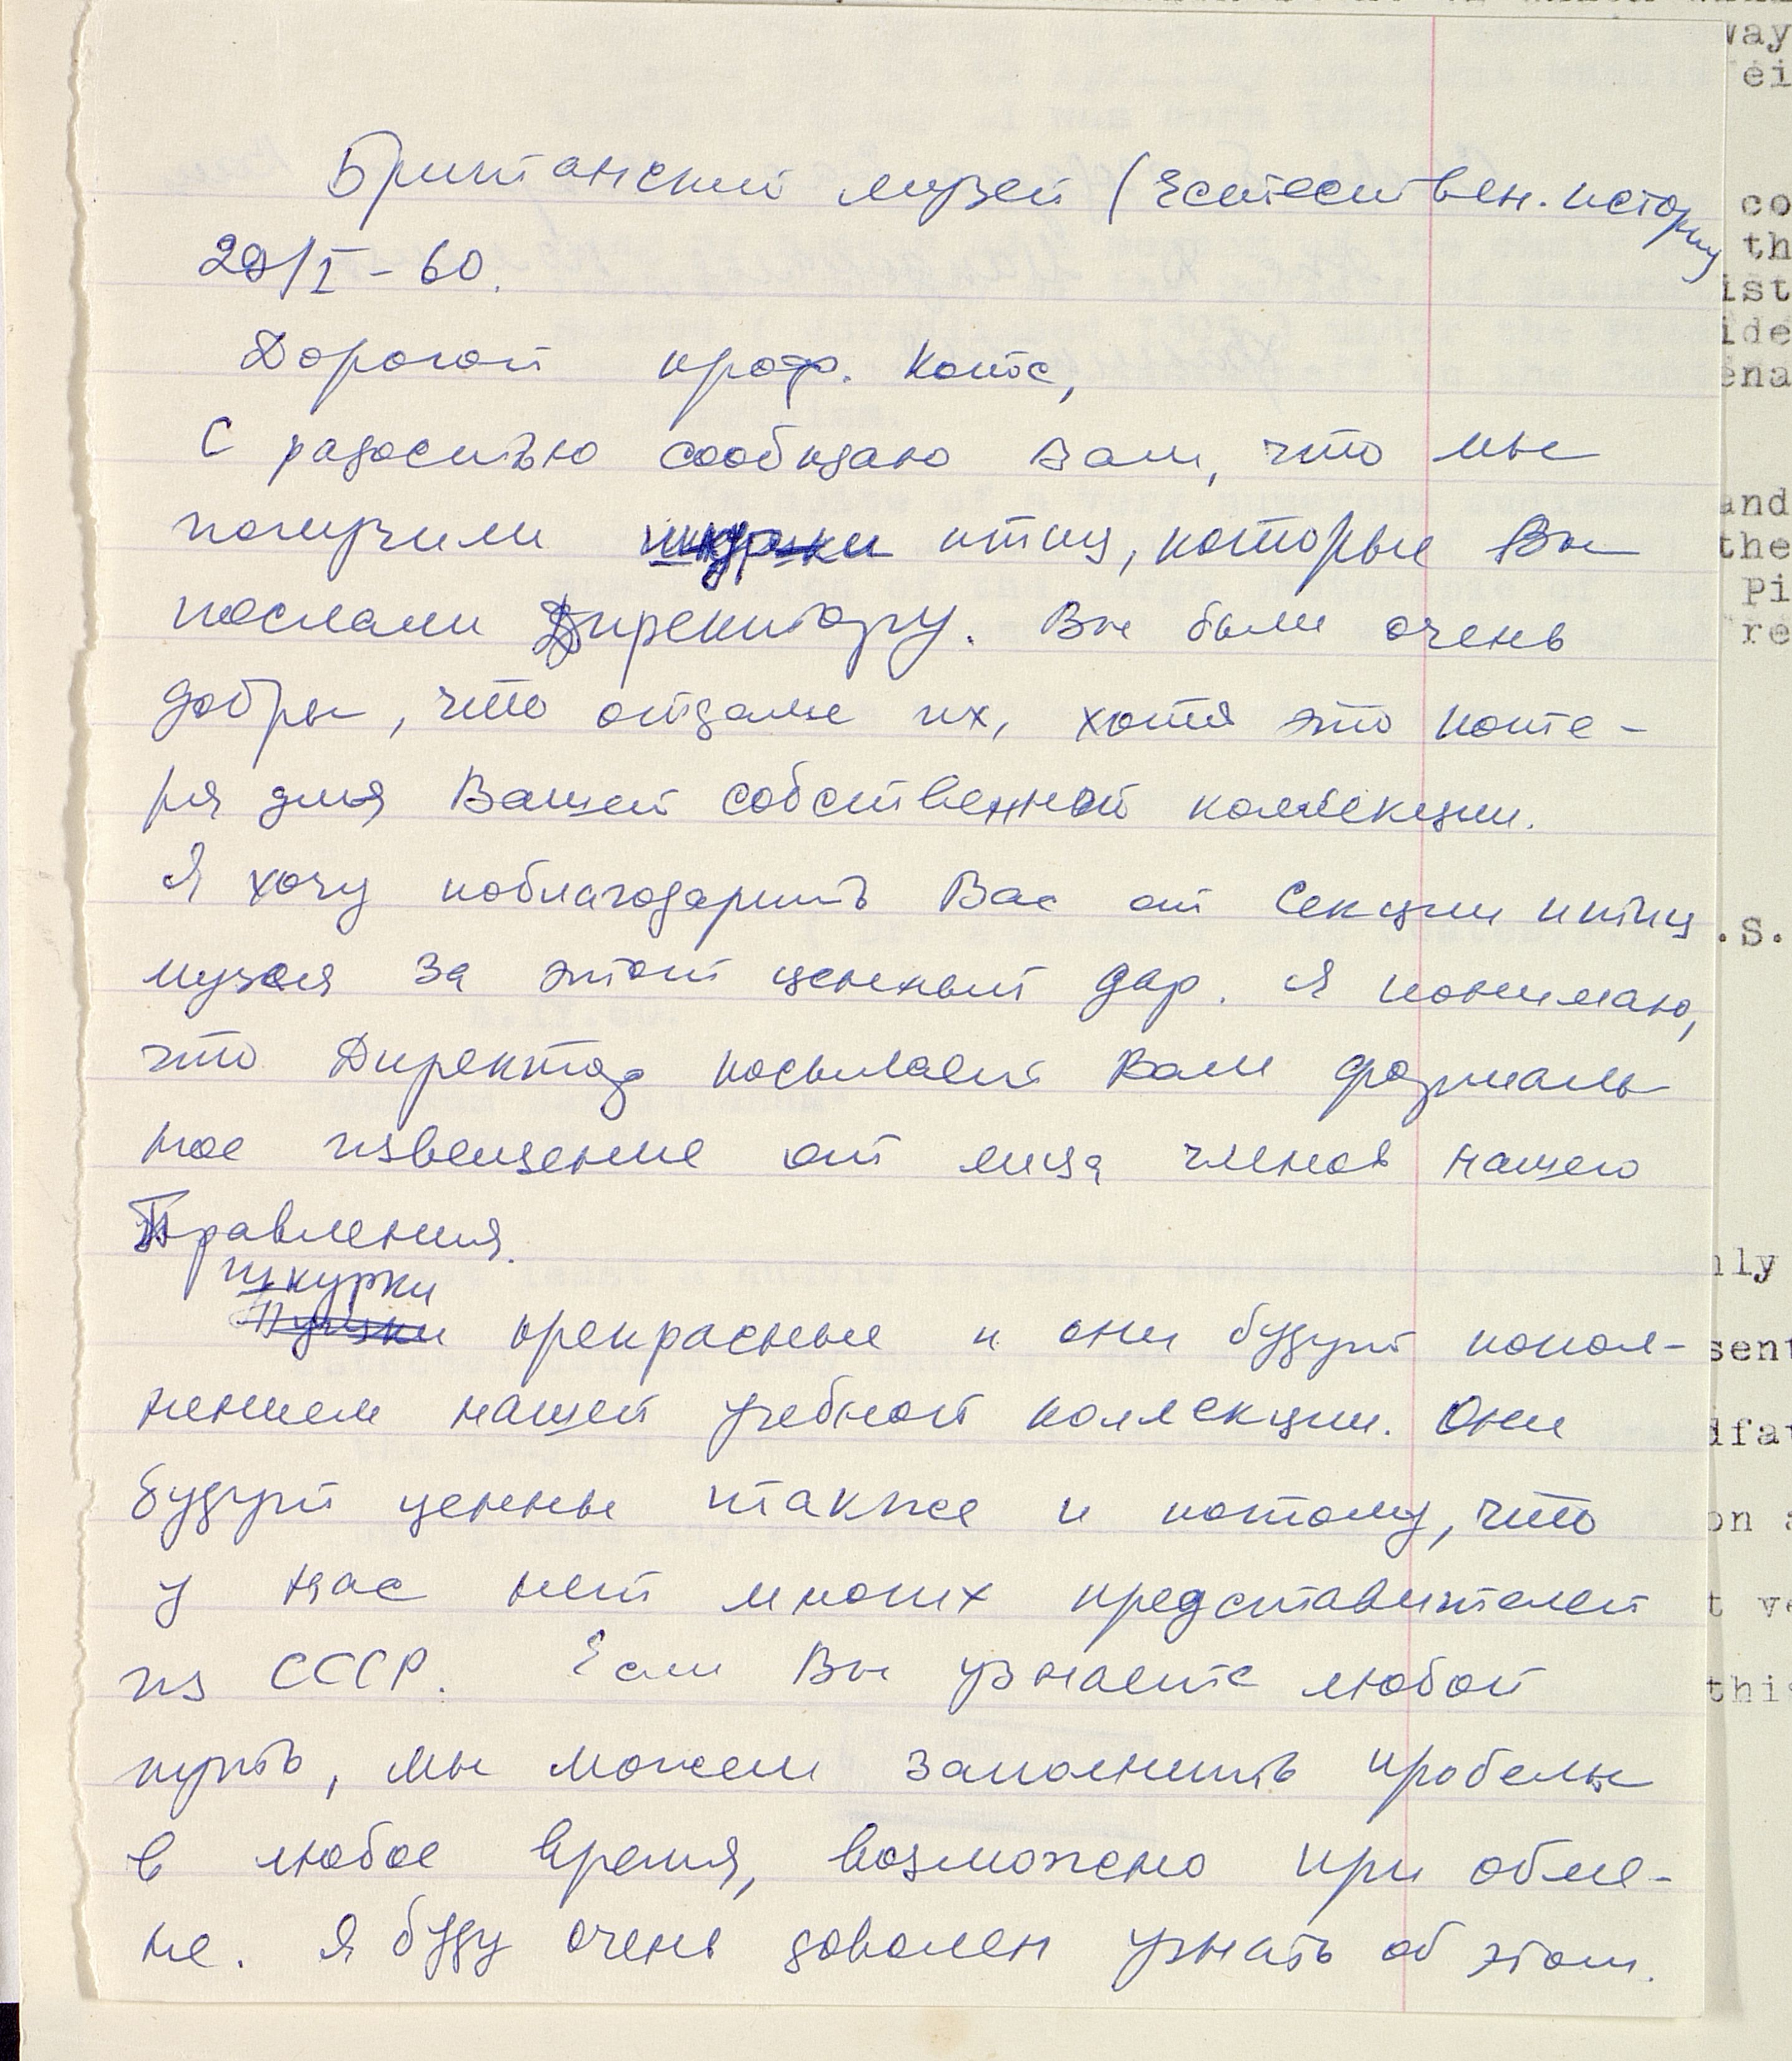 Британский музей (Естествен. историу
29/I - 60.
Дорогой проф. Котс,
С радостью сообщаю Вам, что мы
получили шкурки птиц, которые Вы
послали Директору. Вы были очень
добры, что отдали их, хотя это поте-
ря для Вашей собственной коллекции.
Я хочу поблагодарить Вас от Секции птиц
музея за этот ценный дар. Я понимаю,
что Директор посылает Вам формаль
ное извещение от лица членов нашего
Правления.
шкурки
прекрасные и они будут попол-
нением нашей учебной коллекции. Они
будут ценны также и потому, что
у нас нет многих представителей
из СССР. Если Вы узнаете любой
путь, мы можем заполнить пробелы
в любое время, возможно при обме-
не. Я буду очень доволен узнать об этом.
way
ei
co
th
ist
ide
ena
and
the
pi
re
.s.
nly
sent
dfat
on a
t ve
this